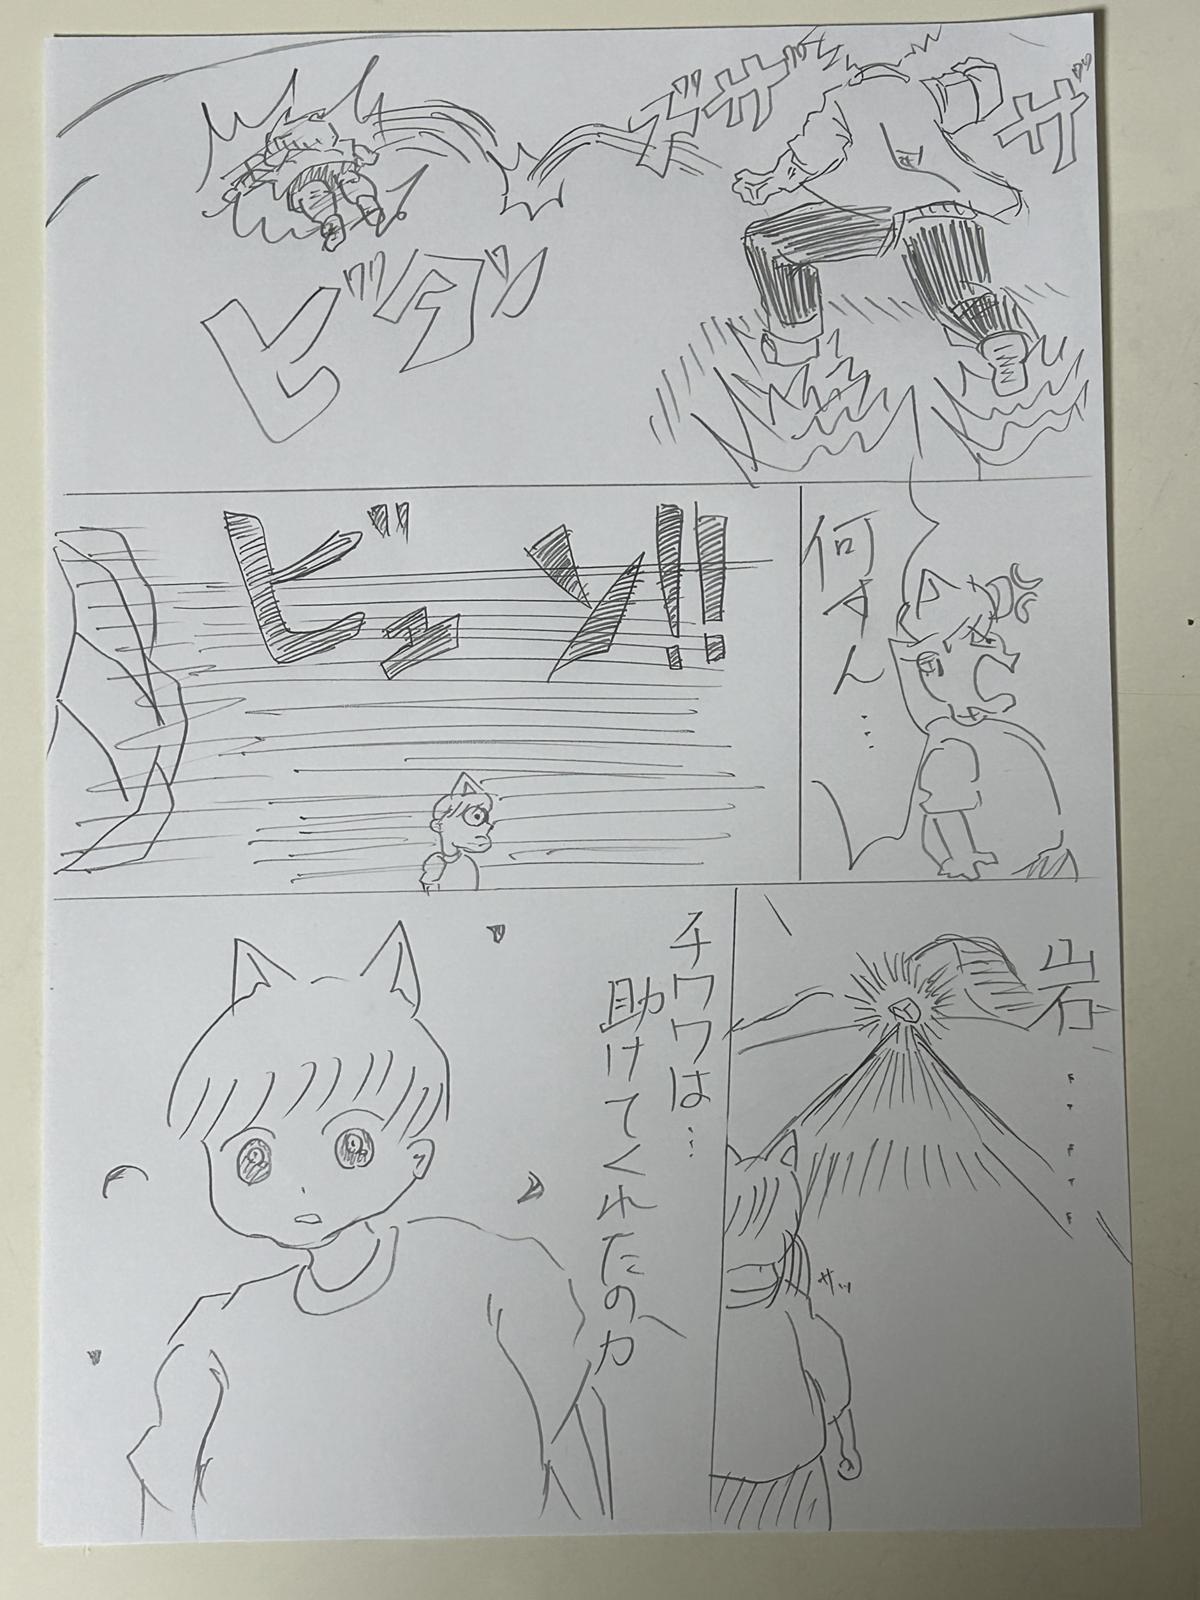 ズザ
ザ
ビタン
何すん…
ビュン!!
岩……
サッ
チワワは…
助けてくれたのか